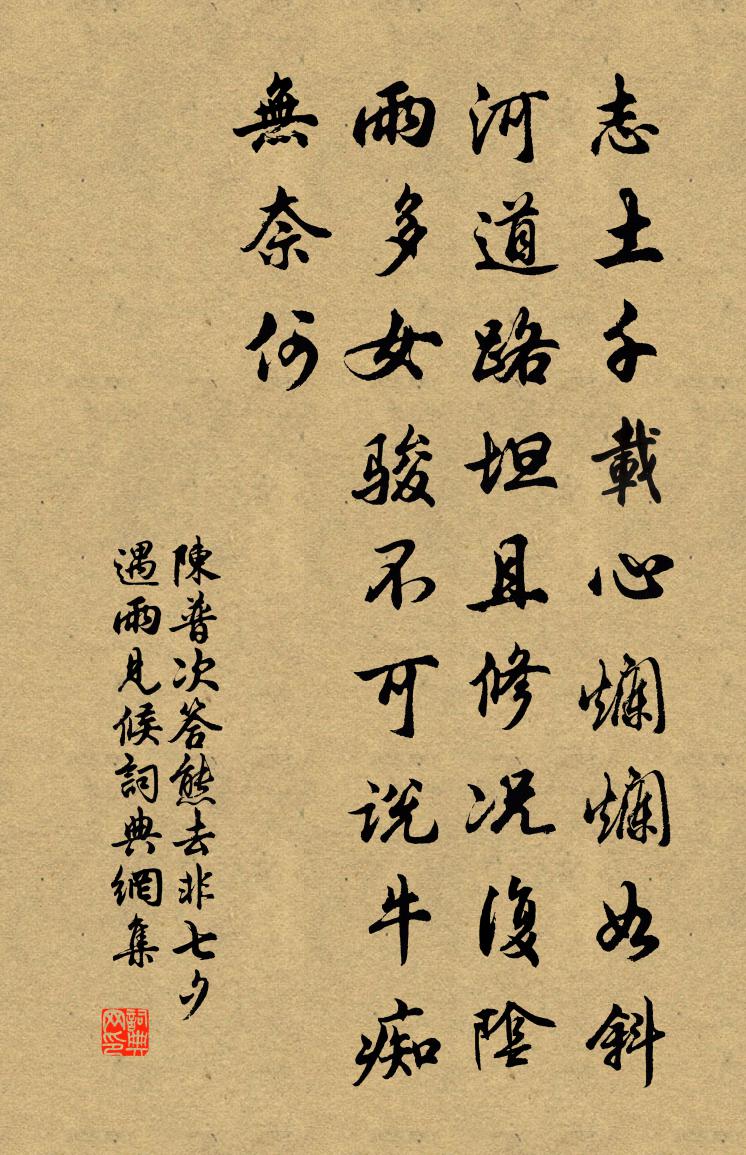 志士千載心爛爛如斜
河道路坦且修況復陰
雨多女骏不可说牛痴
無奈何
陳普次答熊去非七夕
遇雨見候詞典網集
詞典網印